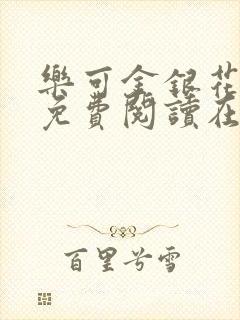 樂可金銀花
免費閱讀在
百里兮雪